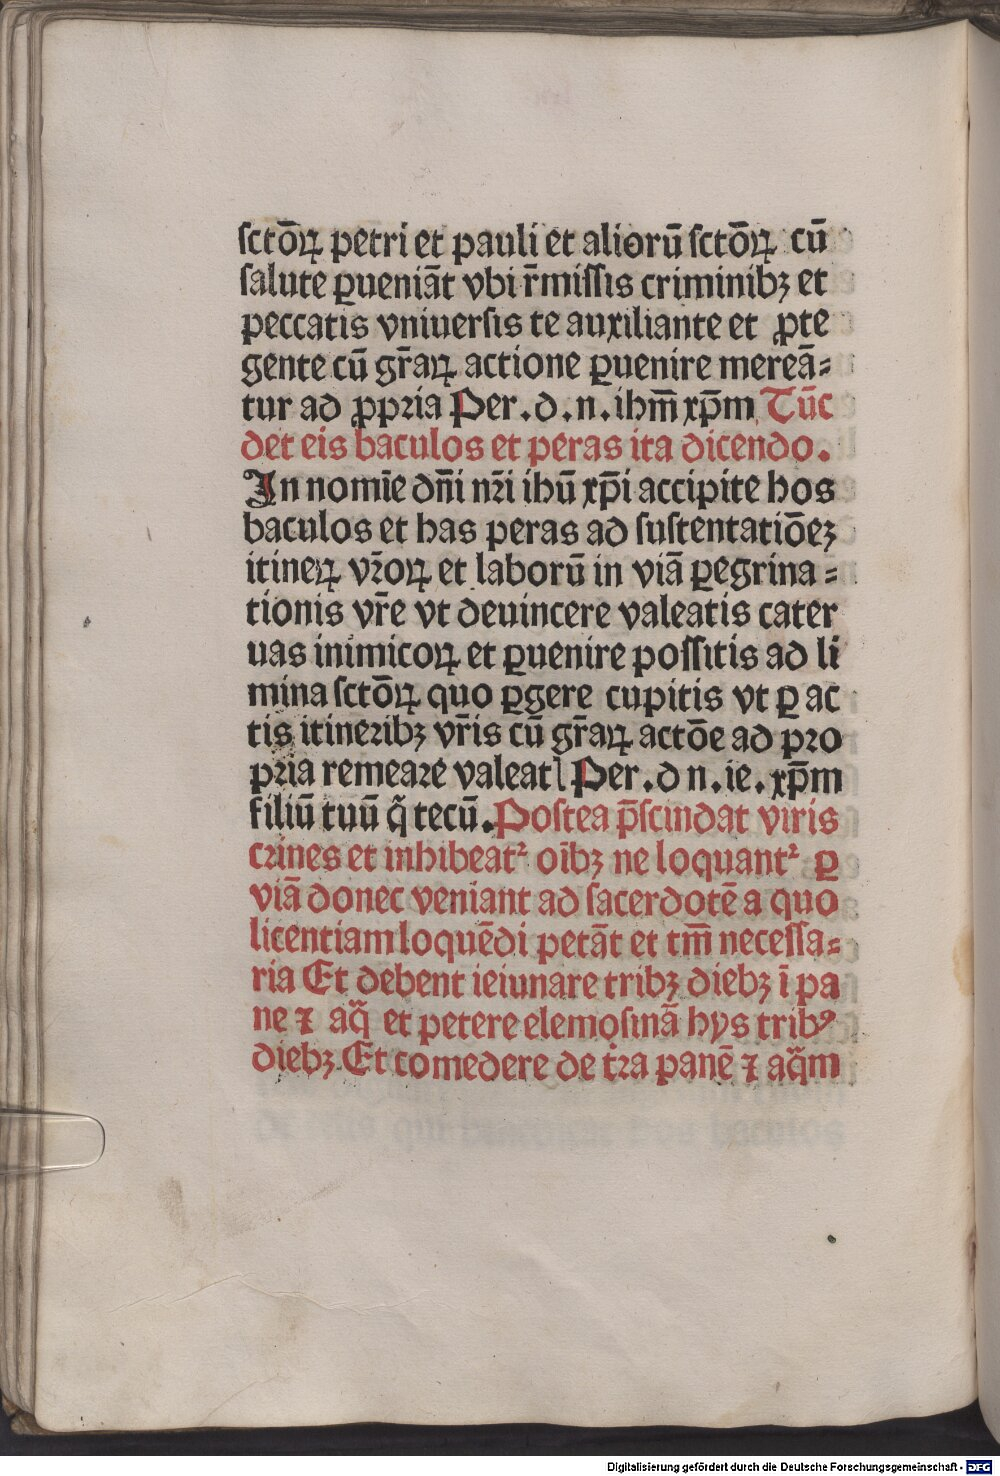 sctōꝝ petri et pauli et aliorū sctōꝝ cū
salute ꝑueniāt vbi r̄missis criminibꝫ et
peccatis vniuersis te auxiliante et ꝓte
gente cū gr̄aꝝ actione ꝑuenire mereā⸗
tur ad ꝓpria Per.d.n.ihm̄ xp̄m Tūc
det eis baculos et peras ita dicendo.
In nomīe dn̄i nr̄i ihū xp̄i accipite hos
baculos et has peras ad sustentatiōeꝫ
itineꝝ vr̄oꝝ et laborū in viā ꝑegrina⸗
tionis vr̄e vt deuincere valeatis cater
uas inimicoꝝ et ꝑuenire possitis ad li
mina sctōꝝ quo ꝑgere cupitis vt ꝑ ac
tis itineribꝫ vr̄is cū gr̄aꝝ actōe ad pro
pria remeare valeatl Per.d n.ie.xp̄m
filiū tuū q̄ tecū. Postea p̄scindat viris
crines et inhibeatᷣ oībꝫ ne loquantᷣ ꝑ
viā donec veniant ad sacerdotē a quo
licentiam loquēdi petāt et tm̄ necessa⸗
ria Et dēbent ieiunare tribꝫ diebꝫ ī pa
ne ⁊ aq̄ et petere elemosinā hys tribꝰ
diebꝫ Et comedere de tr̄ra panē ⁊ aq̄m
Digitalisierung gefördert durch die Deutsche Forschungsgemeinschaft - DFG